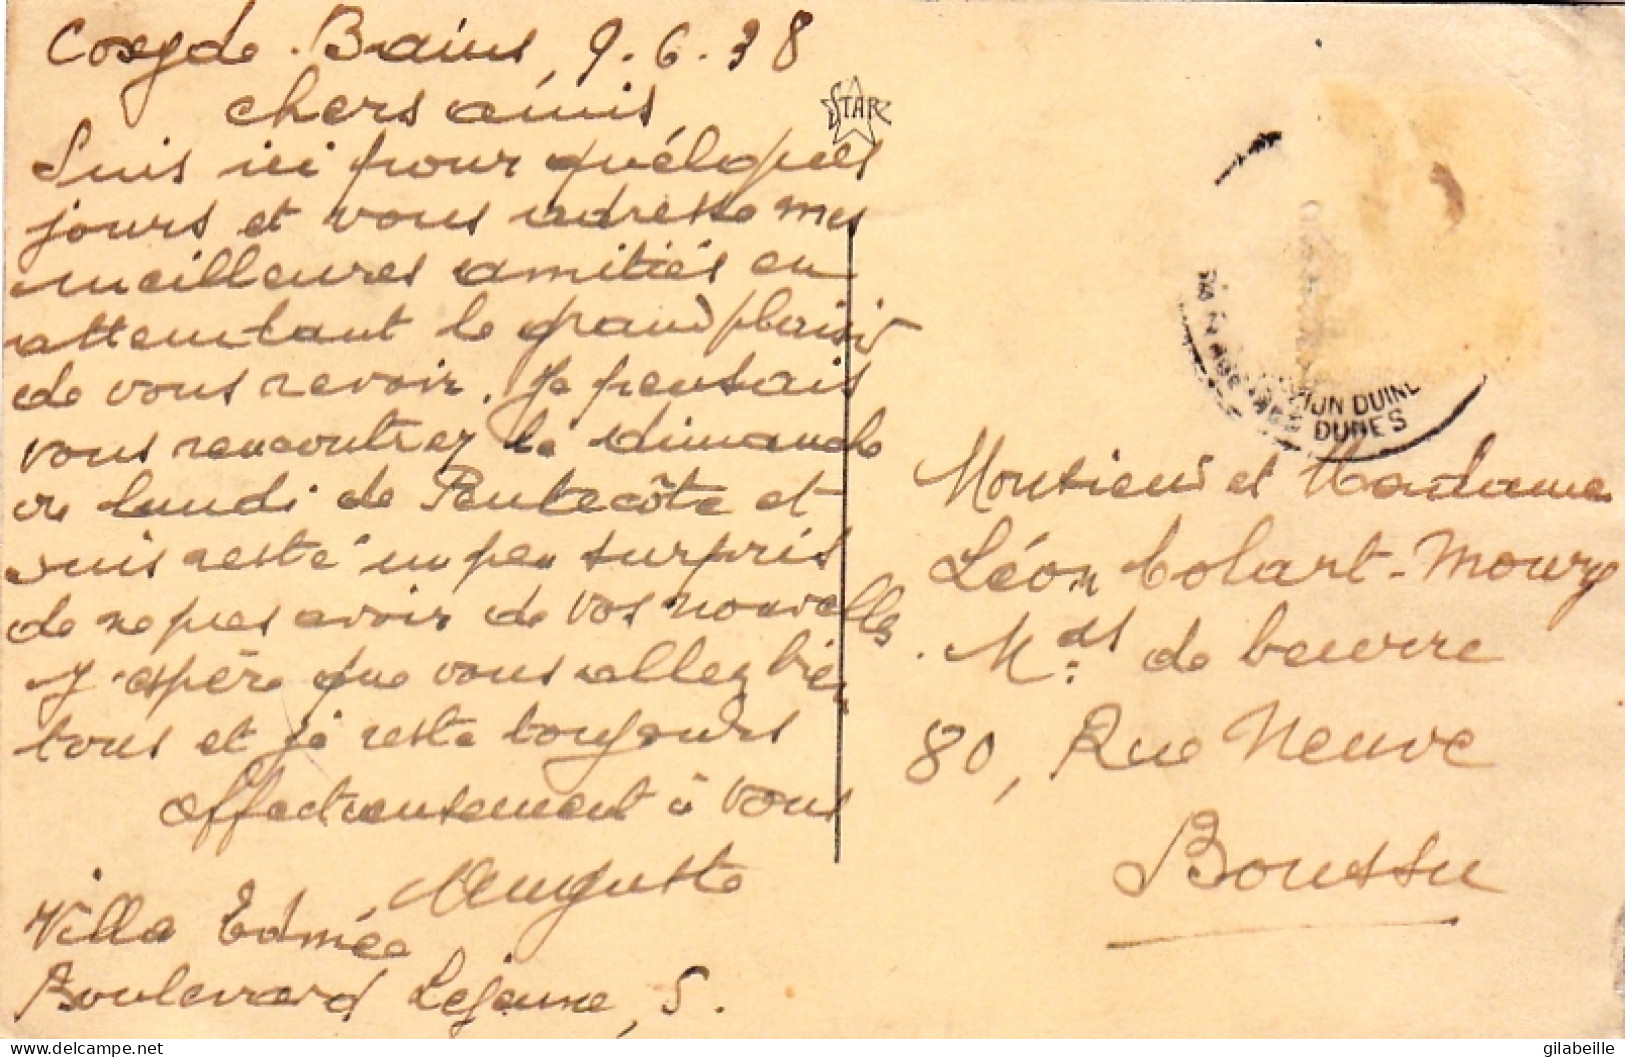 Coxyde-Bains, 9.6.38
chers amis,
STAR
Suis ici pour quélques
jours et vous adresse mes
meilleures amitiés en
attendant le grand plaisir
de vous revoir. Je pensais
vous rencontrez le dimanche
ou lundi de Pentecôte et
suis resté un peu surpris
de ne pas avoir de vos nouvelles
J'espère que vous allez bien
tous et je reste toujours
affectueusement à vous
Auguste
Villa Edmée
Boulevard Lejeune, 5.
DUIN
DUNES
Monsieur et Madame
Léon Colart-Moury
Mds de beurre
80, Rue Neuve
Boussu
delcampe.net
gilabeille